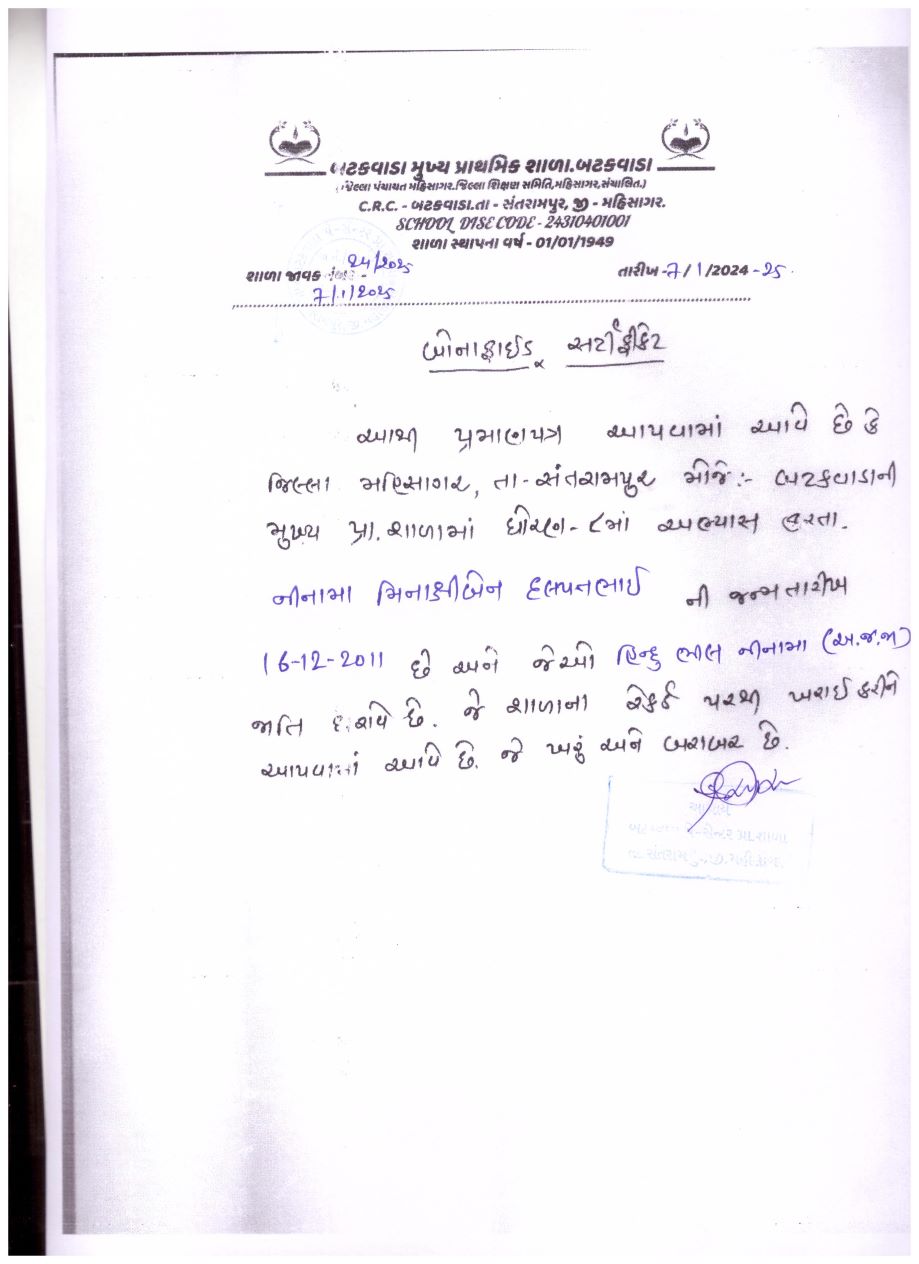 બટકવાડા મુખ્ય પ્રાથમિક શાળા.બટકવાડા
(જિલ્લા પંચાયત મહિસાગર.જિલ્લા શિક્ષણ સમિતિ,મહિસાગર,સંચાલિત.)
C.R.C. - બટકવાડા.તા - સંતરામપુર, જી - મહિસાગર.
SCHOOL DISE CODE - 24310401001
શાળા સ્થાપના વર્ષ - 01/01/1949
શાળા જાવક નંબર - 24/2025 તારીખ -7/1/2024 -25.
7/1/2025
બોનાફાઈડ સર્ટીફીકેટ
આથી પ્રમાણપત્ર આપવામાં આવે છે કે
જિલ્લા મહિસાગર, તા-સંતરામપુર મોજે:- બટકવાડાની
મુખ્ય પ્રા. શાળામાં ધોરણ-૮માં અભ્યાસ કરતા.
નીનામા મિનાક્ષીબેન દલપતભાઈ ની જન્મ તારીખ
16-12-2011 છે અને જેઓ હિન્દુ ભીલ નીનામા (અ.જ.જા)
જાતિ ધરાવે છે. જે શાળાના રેકર્ડ પરથી ખરાઈ કરીને
આપવામાં આવે છે. જે ખરું અને બરાબર છે.
આચાર્ય